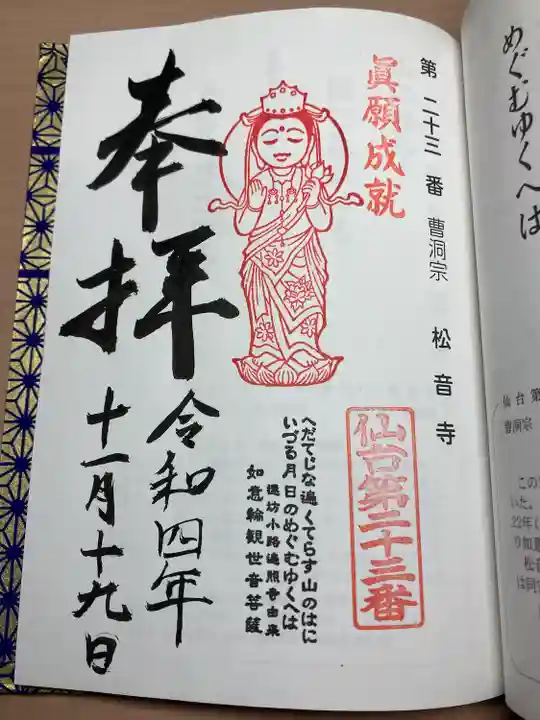 めぐむゆくへは
第二十三番 曹洞宗 松音寺
眞願成就
仙台第二十三番
へだてじな遍くてらす山のはに
いづる月日のめぐむゆくへは
遍坊小路遍照寺由来
如意輪観世音菩薩
奉拝
令和四年
十一月十九日
仙台第
曹洞宗
この
いた。
22年(
り如意
松音
は同